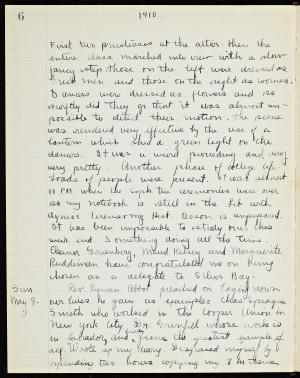 6
1910.
First two priestesses at the altar. Then the
entire class marched into view with a slow
fancy step those on the left were dressed as
Greek men and those on the right as women.
Dancers were dressed as flowers and so
swiftly did they go that it was almost im-
possible to detect their motion. The scene
was rendered very effective by the use of a
lantern which shed a green light on the
dancers. It was a weird proceeding and very
very pretty. Another phase of college life.
Loads of people were present. It was almost
10 PM when the Soph tree ceremonies were over
so my notebook is still in the
Agnes and my Het. lesson is unprepared.
It has been impossible to study over this
week end. Something doing all the time.
Eleanor Greenberg, Maud Kelsey and Marguerite
Ruddiman have congratulated me on being
chosen as a delegate to Silver Bay.
Sun.
May 8.
Rev. Lyman Abbot preached on Laying down
our lives he gave as examples Chas Sprague
Smith who worked in the Cooper Union in
New York City, Dr. Grenfel whose work is
in Labrador, and Jesus the greatest example of
all. Wrote in my diary. Disgraced myself by
spending two hours copying my Eng. theme.